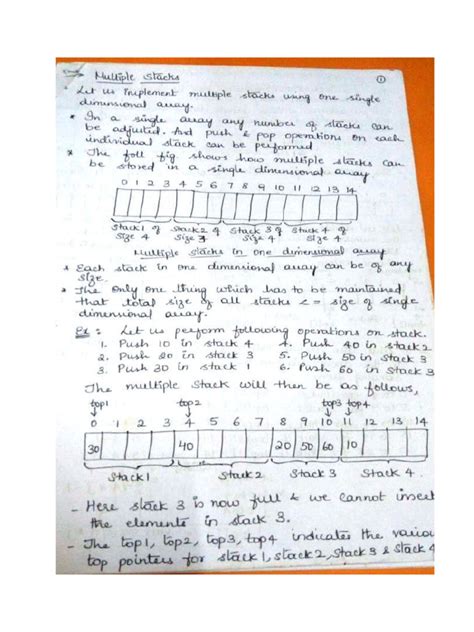 Multiple Stacks ①
Let us implement multiple stacks using one single
dimensional array.
* In a single array any number of stacks can
be adjusted. And push & pop operations on each
individual stack can be performed
* The foll fig shows how multiple stacks can
be stored in a single dimensional array
0 1 2 3 4 5 6 7 8 9 10 11 12 13 14
Stack 1 of Stack 2 of Stack 3 of Stack 4 of
Size 4 Size 3 Size 4 Size 4
Multiple stacks in one dimensional array
* Each stack in one dimensional array can be of any
size.
* The only one thing which has to be maintained
that total size of all stacks <= size of single
dimensional array.
Ex : Let us perform following operations on stack.
1. Push 10 in stack 4 4. Push 40 in stack 2
2. Push 20 in stack 3 5. Push 50 in stack 3
3. Push 30 in stack 1 6. Push 60 in stack 3
The multiple stack will then be as follows,
top1 top2 top3 top4
0 1 2 3 4 5 6 7 8 9 10 11 12 13 14
30 40 20 50 60 10
Stack 1 Stack 2 Stack 3 Stack 4.
- Here stack 3 is now full & we cannot insert
the elements in stack 3.
- The top1, top2, top3, top4 indicates the variou
top pointers for stack 1, stack 2, stack 3 & stack 4